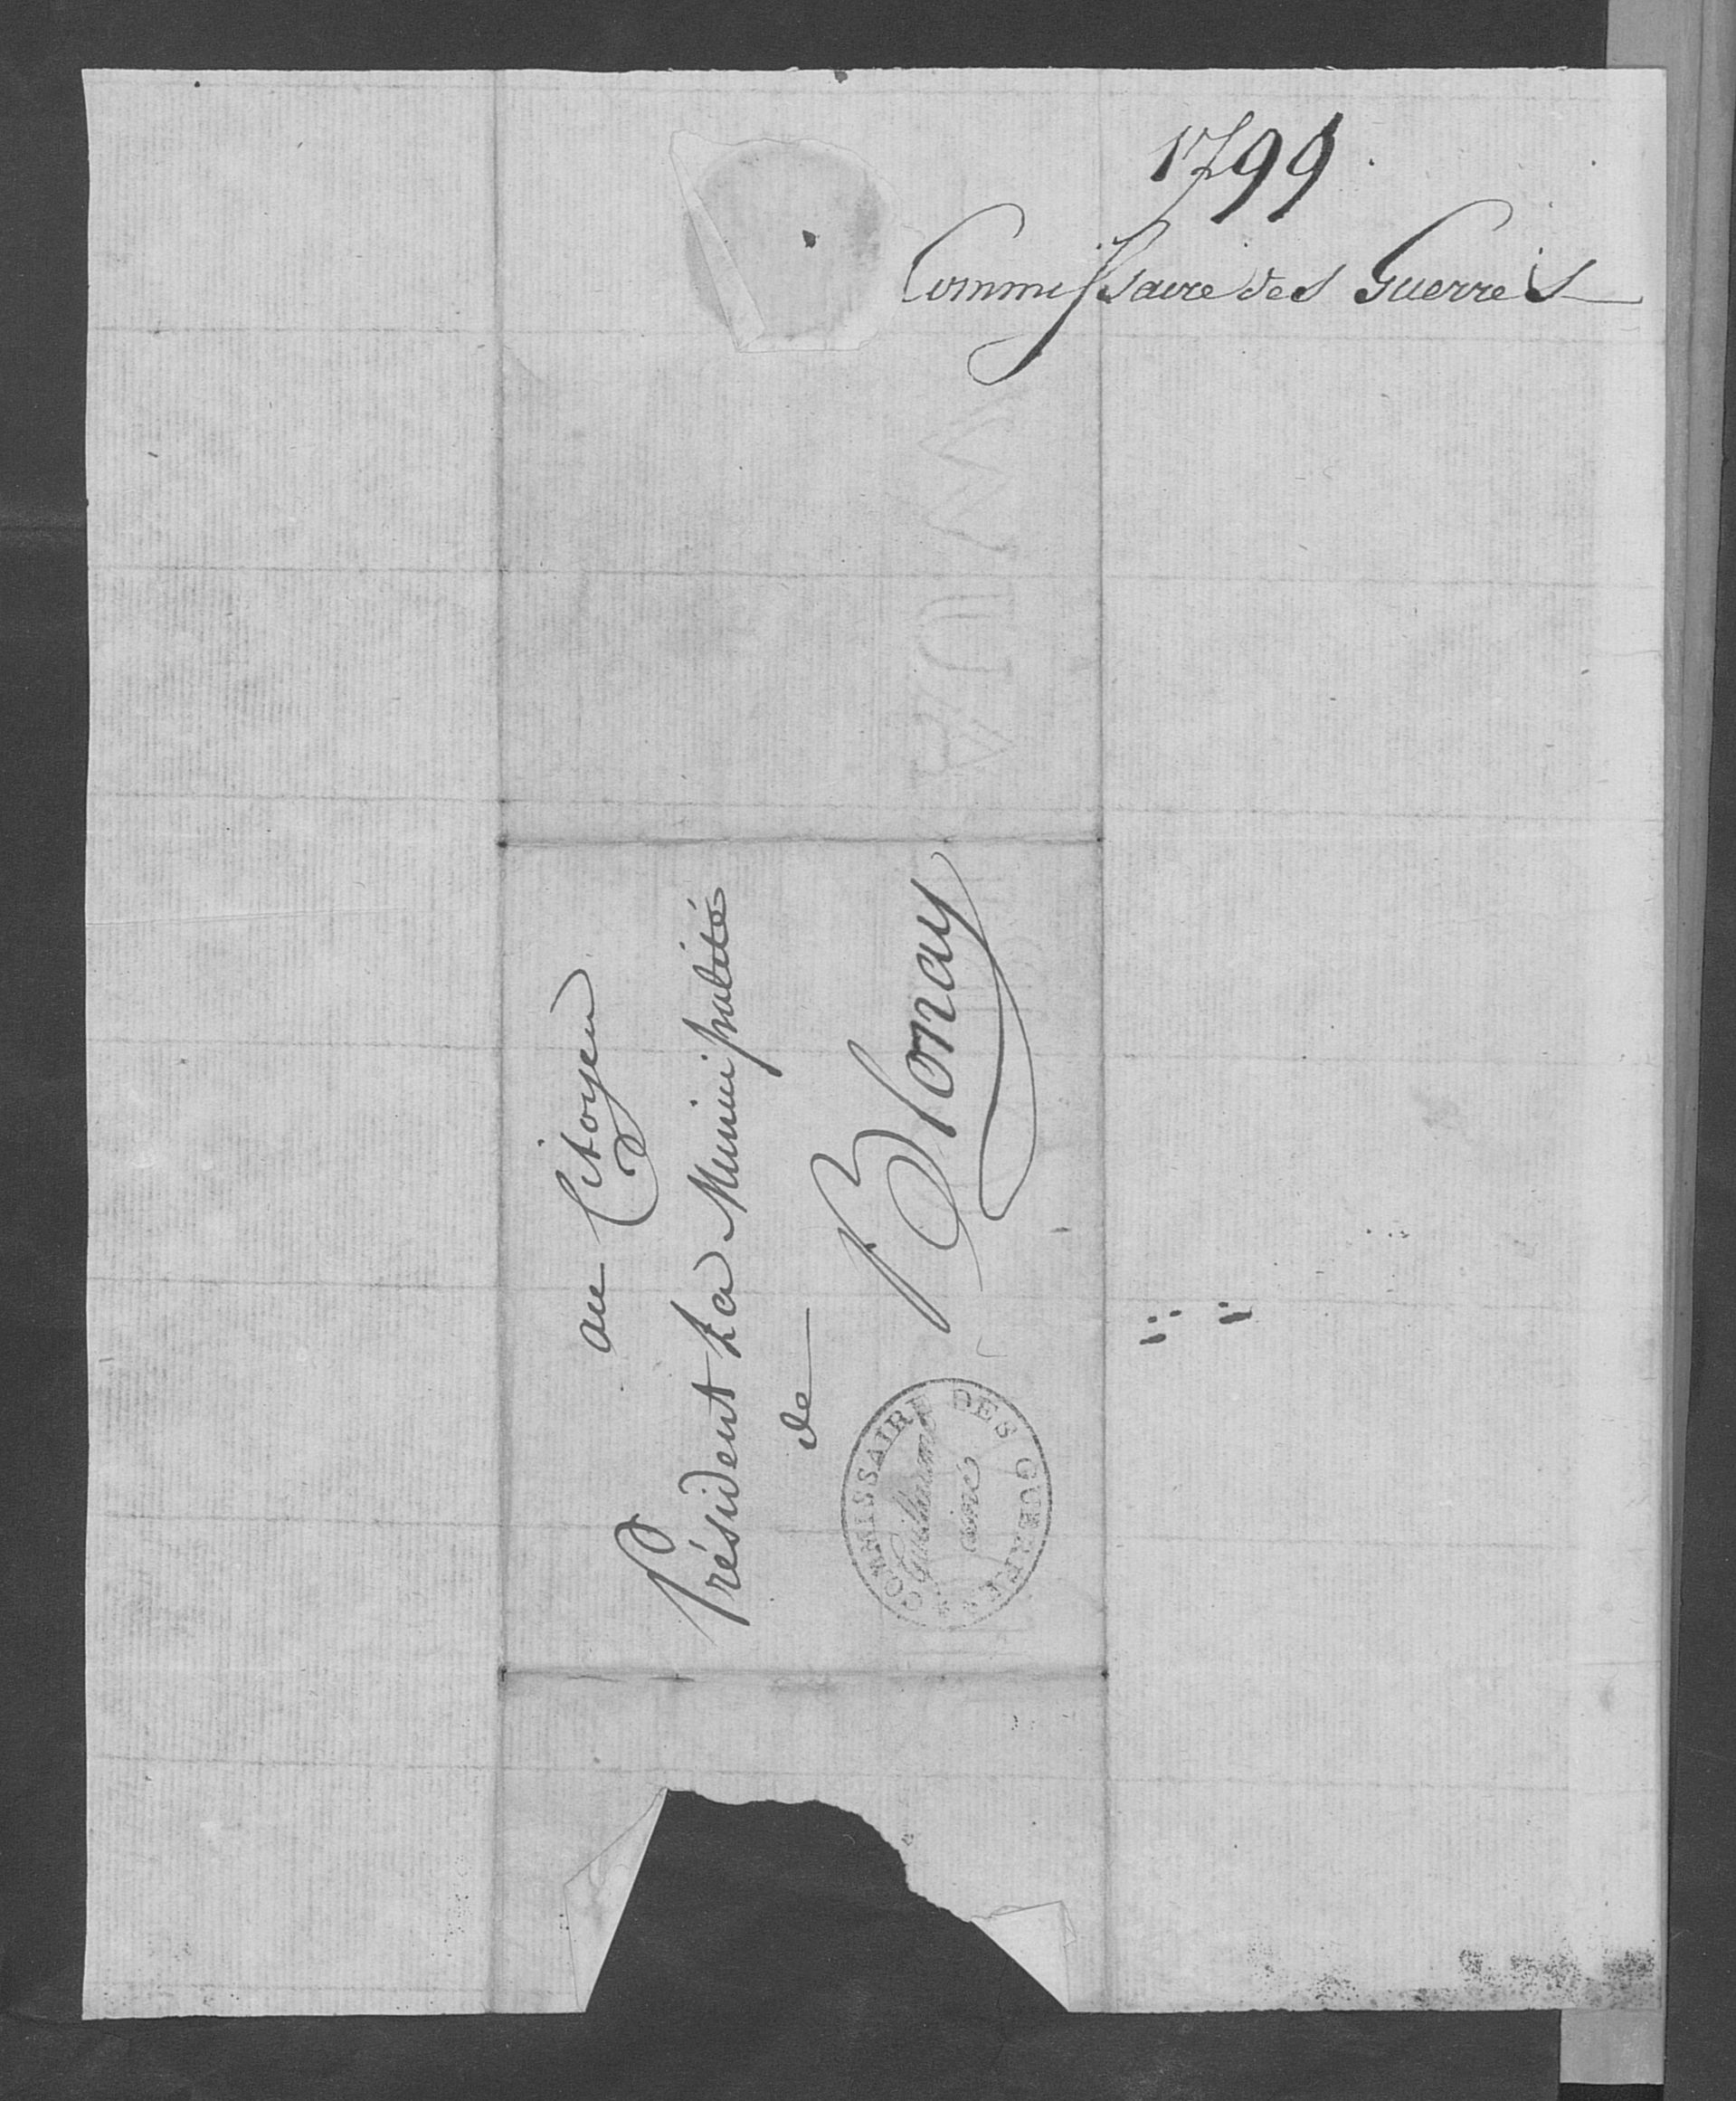 1799
Commissaire des Guerres
au Citoyen
Président La Municipalité
de
Blonay
COMMISSAIRE DES GUERRES
ainé